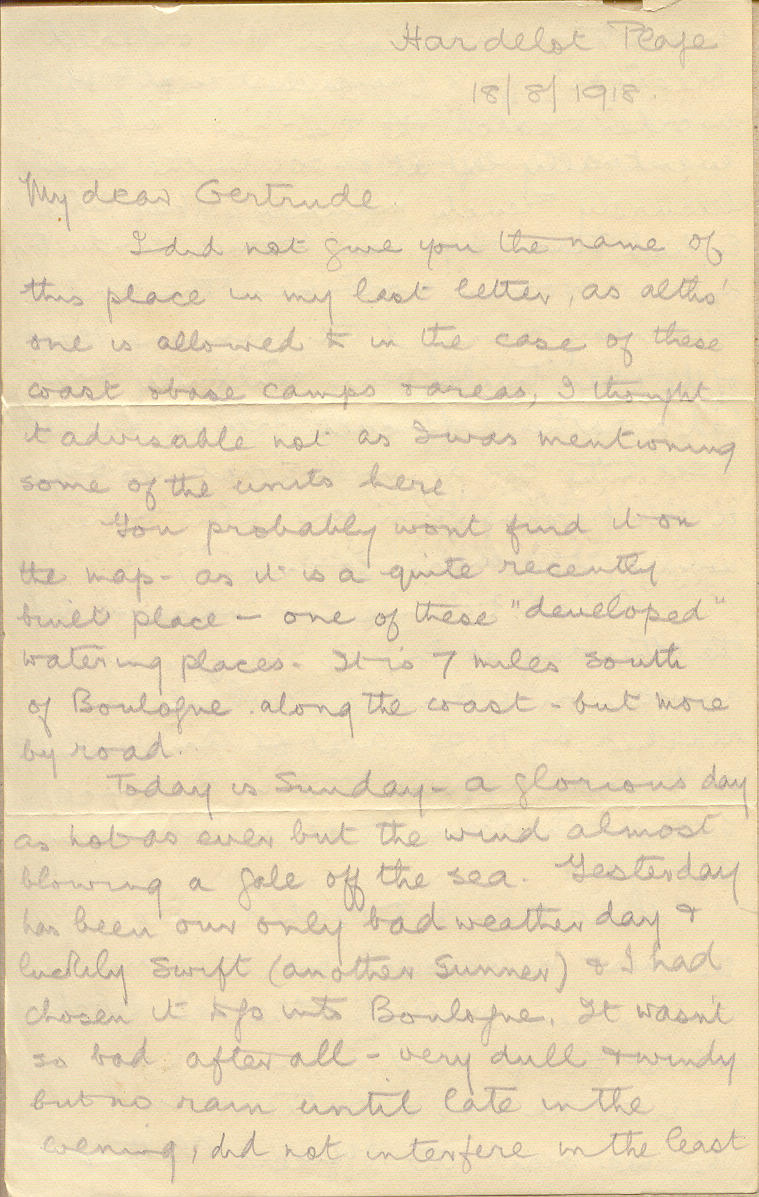 Hardelot Plage
18/8/1918.
My dear Gertrude.
I did not give you the name of
this place in my last letter, as altho'
one is allowed to in the case of these
coast & base camps & areas, I thought
it advisable not as I was mentioning
some of the units here.
You probably wont find it on
the map - as it is a quite recently
built place - one of these "developed"
watering places. It is 7 miles south
of Boulogne along the coast - but more
by road.
Today is Sunday - a glorious day
as hot as ever but the wind almost
blowing a gale off the sea. Yesterday
has been our only bad weather day &
luckily Swift (another Gunner) & I had
chosen it to go into Boulogne. It wasn't
so bad after all - very dull & windy
but no rain until late in the
evening, did not interfere in the least